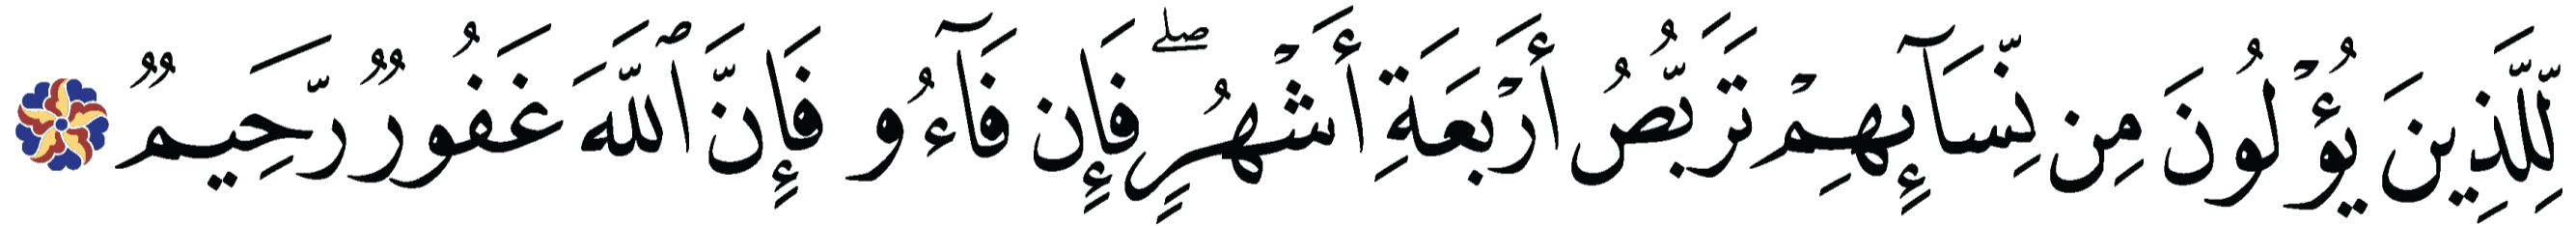 لِّلَّذِينَ يُؤْلُونَ مِن نِّسَآئِهِمْ تَرَبُّصُ أَرْبَعَةِ أَشْهُرٍۖ فَإِن فَآءُو فَإِنَّ ٱللَّهَ غَفُورٌ رَّحِيمٌ